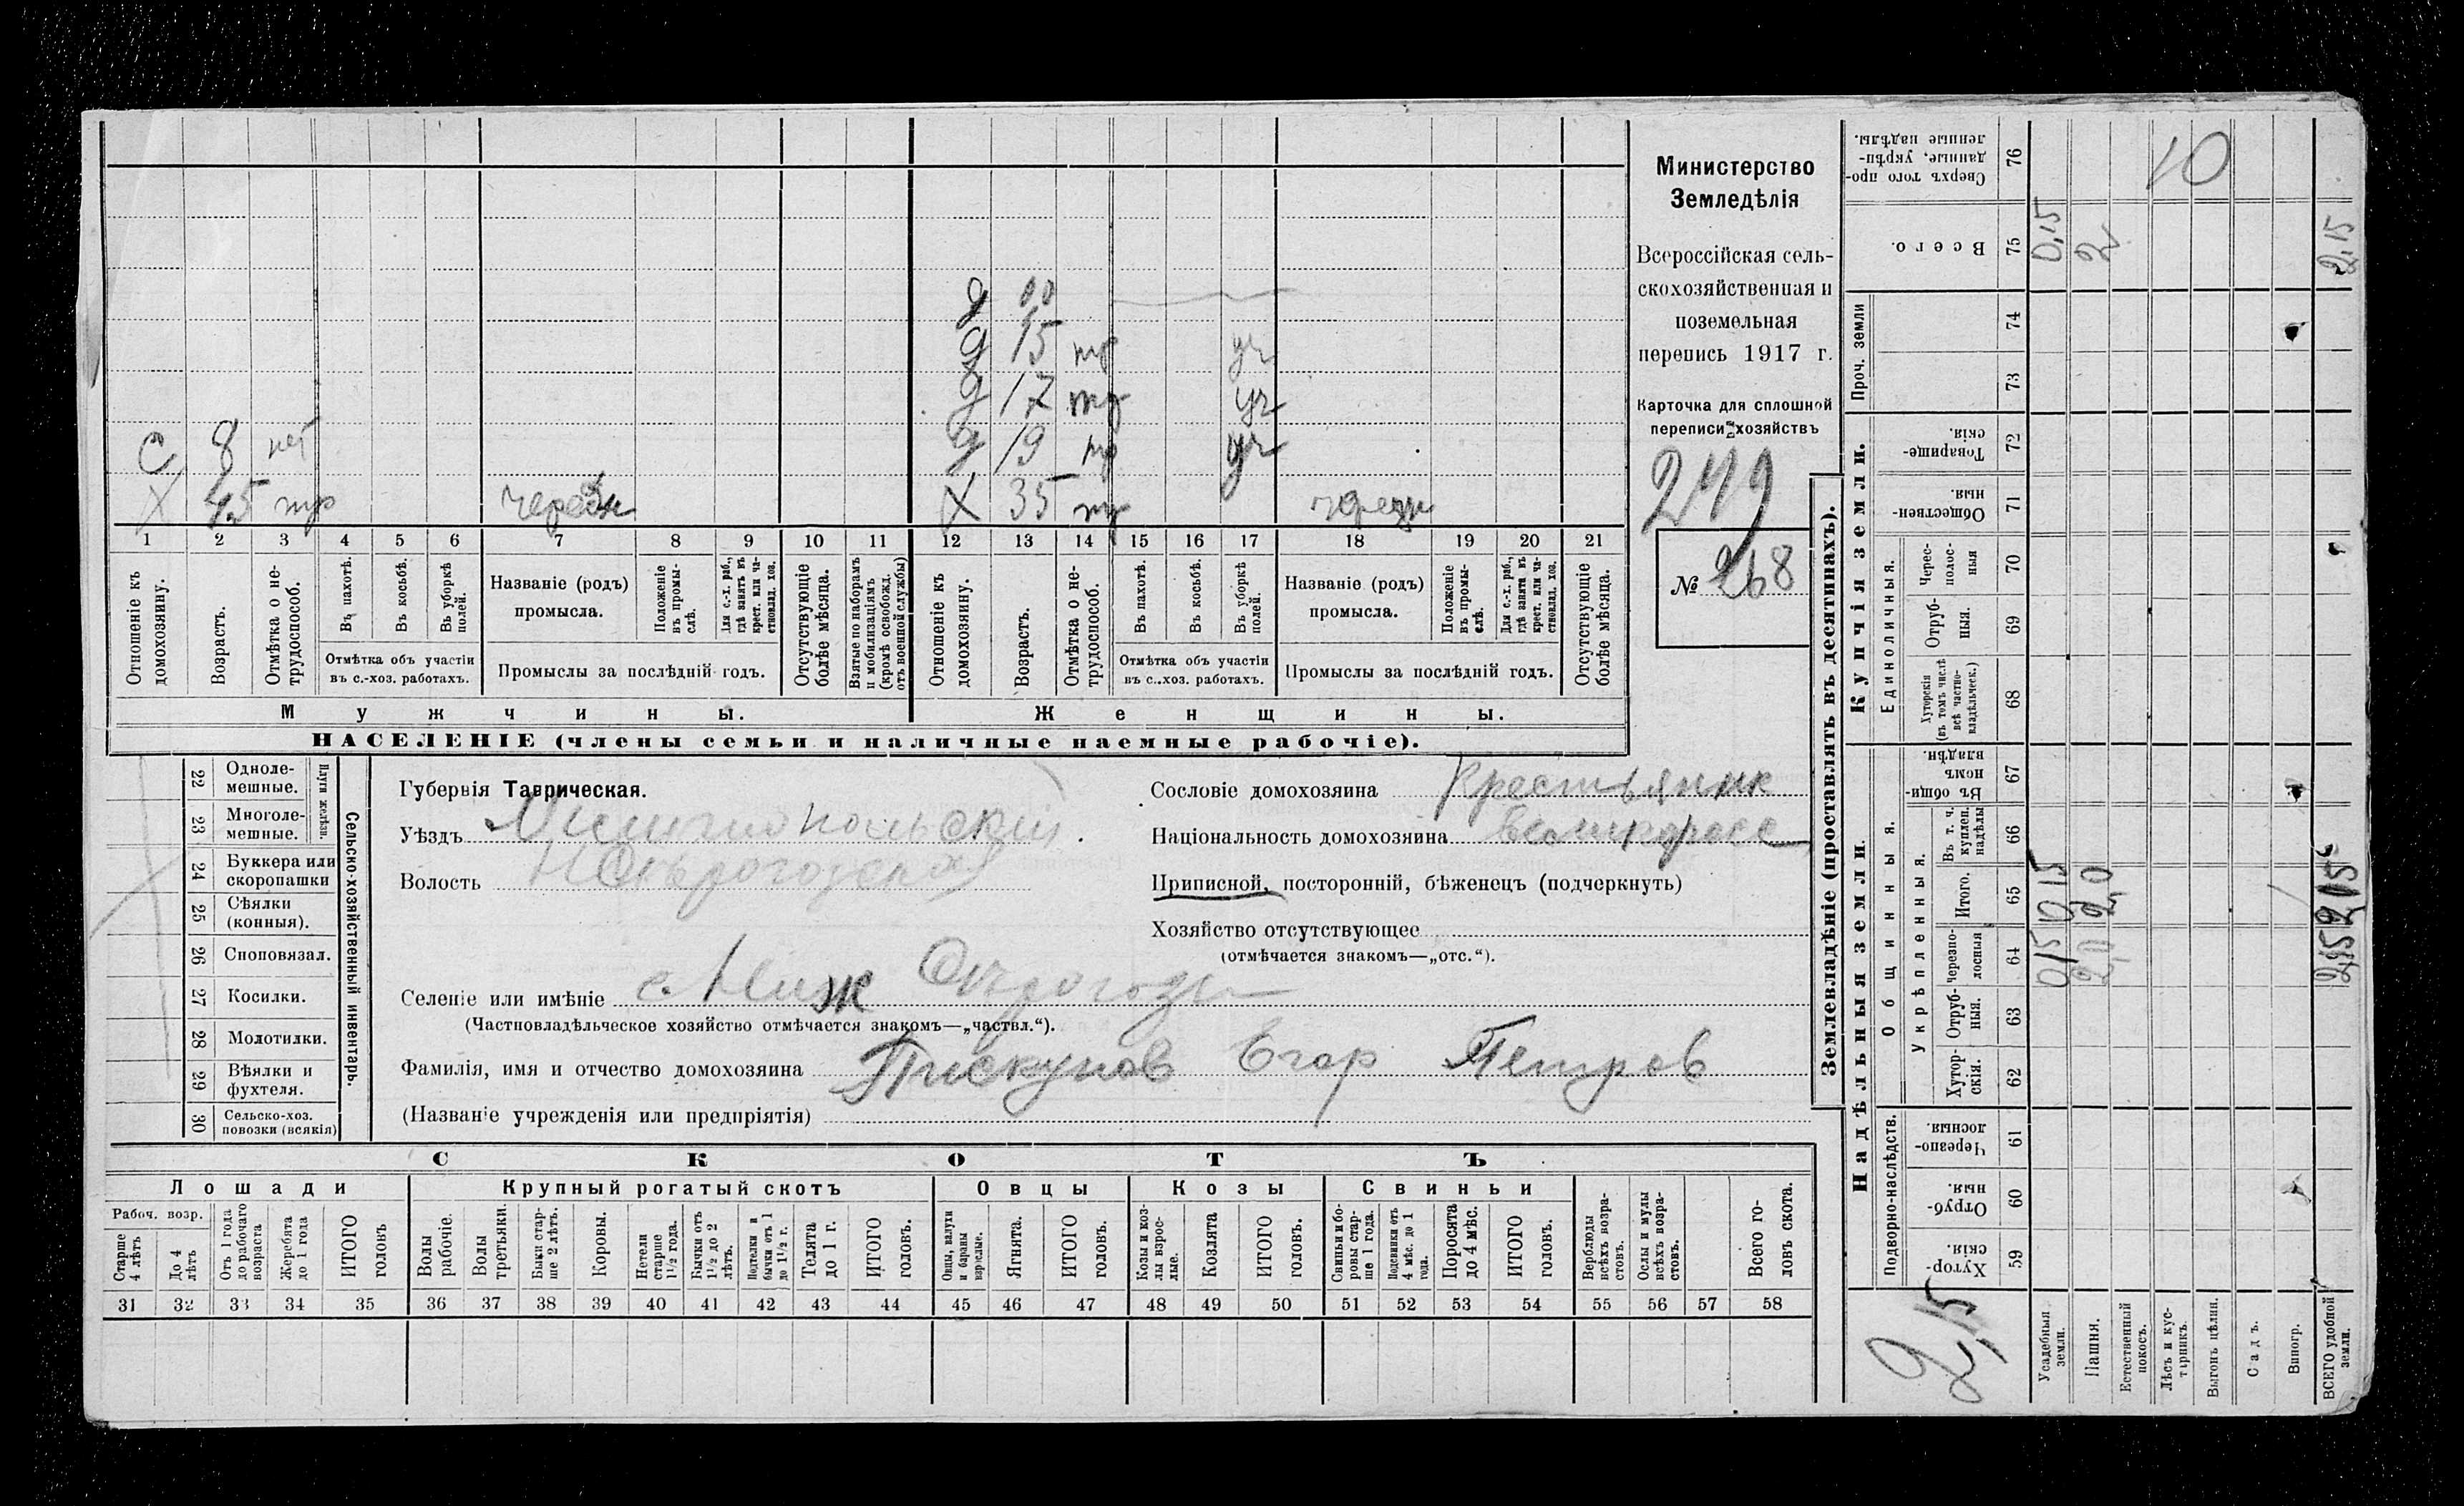 Министерство
Земледѣлія
Всероссійская сель-
скохозяйственная и
поземельная
перепись 1917 г.
Карточка для сплошной
переписи хозяйствъ
249
№ 268
д 0,0
д 15 тр уч
д 17 тр уч
с 8 нет д 19 тр уч
X 45 тр X 35 тр
1 2 3 4 5 6 7 8 9 10 11 12 13 14 15 16 17 18 19 20 21
Отношеніе къ домохозяину.
Возрастъ.
Отмѣтка о не-трудоспособ.
Въ пахотѣ.
Въ косьбѣ.
Въ уборкѣ полей.
Отмѣтка объ участіи
въ с.-хоз. работахъ.
Названіе (родъ)
промысла.
Положеніе въ промы-слѣ.
Для с.-х. раб., гдѣ занятъ въ крест. или ча-стновлад. хоз.
Промыслы за послѣдній годъ.
Отсутствующіе болѣе мѣсяца.
Взятые по наборамъ и мобилизаціямъ (кромѣ освобожд. отъ военной службы)
Отношеніе къ домохозяину.
Возрастъ.
Отмѣтка о не-трудоспособ.
Въ пахотѣ.
Въ косьбѣ.
Въ уборкѣ полей.
Отмѣтка объ участіи
въ с.-хоз. работахъ.
Названіе (родъ)
промысла.
Положеніе въ промы-слѣ.
Для с.-х. раб., гдѣ занятъ въ крест. или ча-стновлад. хоз.
Промыслы за послѣдній годъ.
Отсутствующіе болѣе мѣсяца.
Мужчины. Женщины.
НАСЕЛЕНІЕ (члены семьи и наличные наемные рабочіе).
Сельско-хозяйственный инвентарь.
Плуги желѣзн.
22 Одноле-мешные.
23 Многоле-мешные.
24 Буккера или скоропашки
25 Сѣялки (конныя).
26 Сноповязал.
27 Косилки.
28 Молотилки.
29 Вѣялки и фухтеля.
30 Сельско-хоз. повозки (всякія)
Губернія Таврическая.
Уѣздъ Мелитопольский
Волость
Селеніе или имѣніе с. Ниж Сѣрогозы
(Частновладѣльческое хозяйство отмѣчается знакомъ—„частвл.“).
Фамилія, имя и отчество домохозяина Пискунов Егор Петров
(Названіе учрежденія или предпріятія)
Сословіе домохозяина Крестьяник
Національность домохозяина великоросс
Приписной, посторонній, бѣженецъ (подчеркнуть)
Хозяйство отсутствующее
(отмѣчается знакомъ—„отс.“).
СКОТЪ
Лошади Крупный рогатый скотъ Овцы Козы Свиньи
Рабоч. возр.
Старше 4 лѣтъ
До 4 лѣтъ
Отъ 1 года до рабочаго возраста
Жеребята до 1 года
ИТОГО головъ
Волы рабочіе.
Волы третьяки.
Быки стар-ше 2 лѣтъ.
Коровы.
Нетели старше 1½ года.
Бычки отъ 1½ до 2 лѣтъ.
Подтелки и бычки отъ 1 до 1½ г.
Телята до 1 г.
ИТОГО головъ.
Овцы, валухи и бараны взрослые.
Ягнята.
ИТОГО головъ.
Козы и коз-лы взрос-лые.
Козлята
ИТОГО головъ.
Свиньи и бо-ровы стар-ше 1 года.
Подсвинки отъ 4 мѣс. до 1 года.
Поросята до 4 мѣс.
ИТОГО головъ.
Верблюды всѣхъ возра-стовъ.
Ослы и мулы всѣхъ возра-стовъ.
Всего го-ловъ скота.
31 32 33 34 35 36 37 38 39 40 41 42 43 44 45 46 47 48 49 50 51 52 53 54 55 56 57 58
Землевладѣніе (проставлять въ десятинахъ).
Надѣльныя земли.
Купчія земли.
Проч. земли
Подворно-наслѣдств.
Общинныя.
Укрѣпленныя.
Единоличныя.
Сверхъ того про-данные, укрѣп-ленные надѣлы. 76 10
Всего. 75 0,15 2 2,15
74
73
Товарище-скія. 72
Обществен-ныя. 71
Черес-полос-ныя 70
Отруб-ныя. 69
Хуторскія (въ томъ числѣ всѣ частно-владѣльческ.) 68
Въ общи-номъ владѣн. 67
Въ т. ч. куплен. надѣлы 66
Итого. 65 0,15 2,0 2,15
Черезпо-лосныя 64 0,15 2,0 2,15
Отруб-ныя. 63
Хутор-скія. 62
Черезпо-лосныя. 61
Отруб-ныя. 60
Хутор-скія. 59
2,15
Усадебныя земли.
Пашня.
Естественный покосъ.
Лѣсъ и кус-тарникъ.
Выгонъ цѣлин.
Садъ.
Виногр.
ВСЕГО удобной земли.